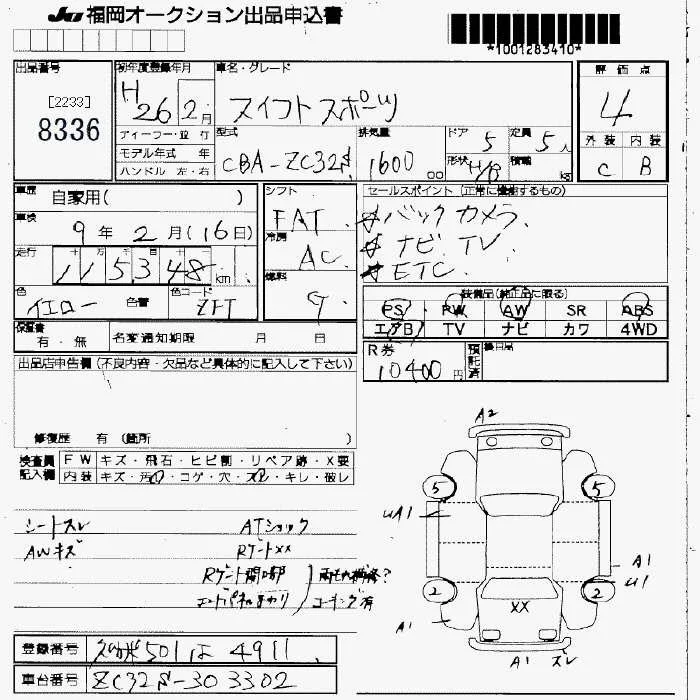 JU 福岡オークション出品申込書
*1001283410*
出品番号
[2233]
8336
初年度登録年月
H 26 2月
車名・グレード
スイフトスポーツ
評価点
4
外装 内装
C B
ディーラー・並行
モデル年式 年
ハンドル 左・右
型式
CBA-ZC32S
排気量
1600 cc
ドア 5
形状 H/B
定員 5人
積載 kg
車歴 自家用( )
車検 9年2月(16日)
走行 十万千百十
115,348 km
色 イエロー 色替
色コード ZFT
シフト
FAT
冷房
AC
燃料
G
セールスポイント(正常に機能するもの)
バックカメラ
ナビ TV
ETC
装備品(純正品に限る)
PS PW AW SR ABS
エアB TV ナビ カワ 4WD
保証書 有・無
名変通知期限 月 日
R券
10400円
預託済
備日局
出品店申告欄(不良内容・欠品など具体的に記入して下さい)
修復歴 有(箇所 )
検査員記入欄
FW キズ・飛石・ヒビ割・リペア跡・X要
内装 キズ・汚・コゲ・穴・スレ・キレ・破レ
シートスレ ATショック
AWキズ RゲートXX
Rゲート開口部
エンドパネルまわり
コーキング有
A2
5 5
UA1
A1
U1
2 2
XX
A1
A1 ズレ
登録番号 久留米501は4911
車台番号 ZC32S-303302